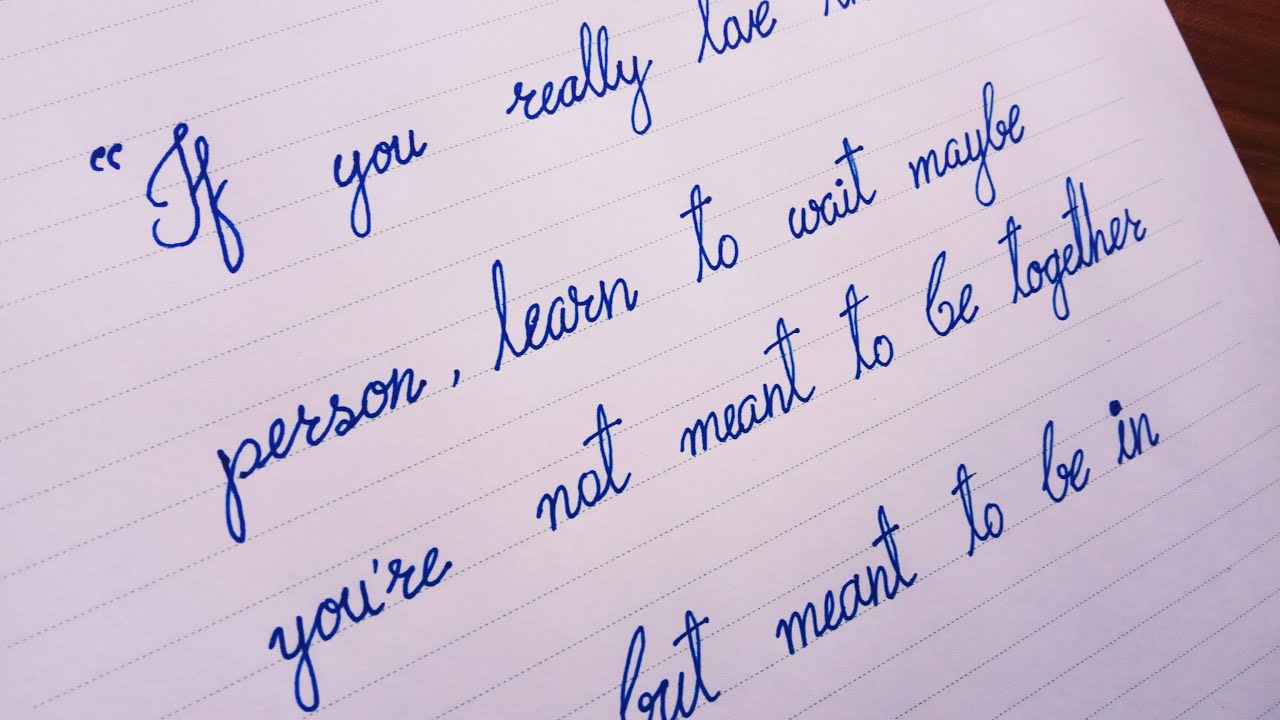 “ If you really love
person, learn to wait maybe
you're not meant to be together
but meant to be in